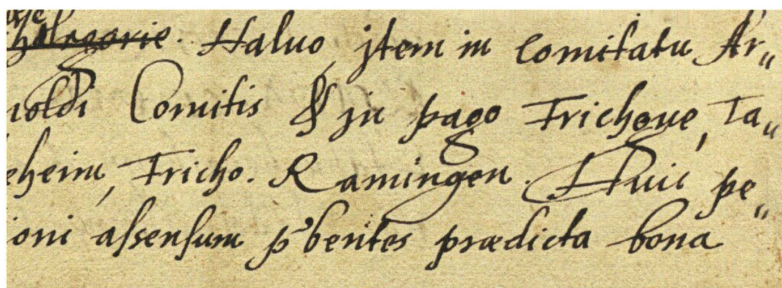 Halvo, jtem in Comitatu Ar„
noldi Comitis & in pago Frichgue, Ta„
eheim, Fricho. Ramingen. Huic pe„
ioni assensum p'bentes prædicta bona